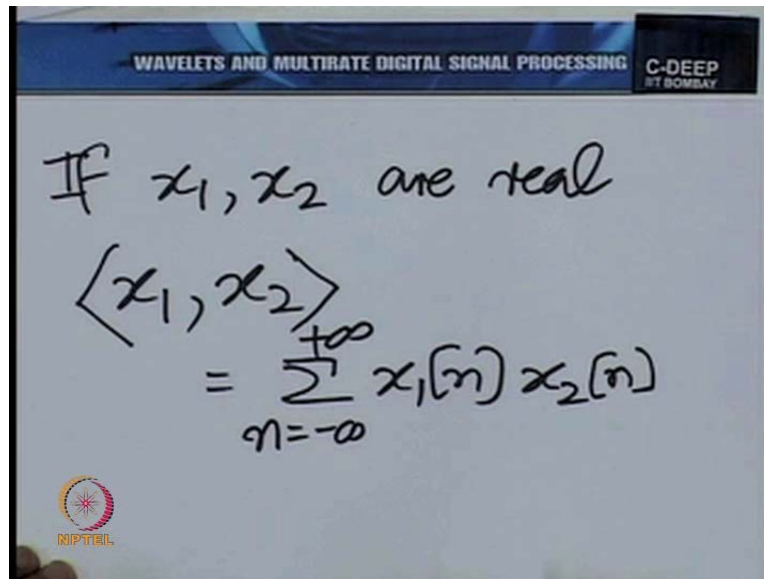 WAVELETS AND MULTIRATE DIGITAL SIGNAL PROCESSING
C-DEEP
IIT BOMBAY
If x₁, x₂ are real
⟨x₁, x₂⟩
= ∑_{n=-∞}^{+∞} x₁[n] x₂[n]
NPTEL